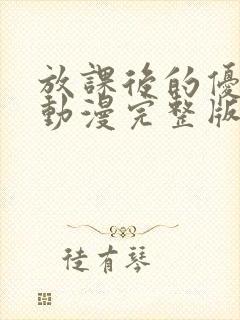 放課後的優
動漫完整版
徒有琴